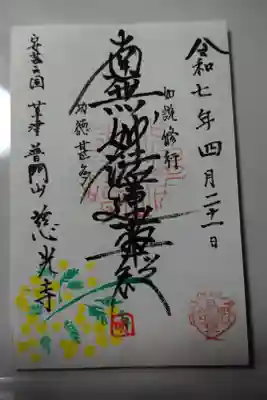 令和七年四月二十一日
如説修行
南無妙法蓮華経
功徳甚多
安芸国 草津 普門山 慈光寺